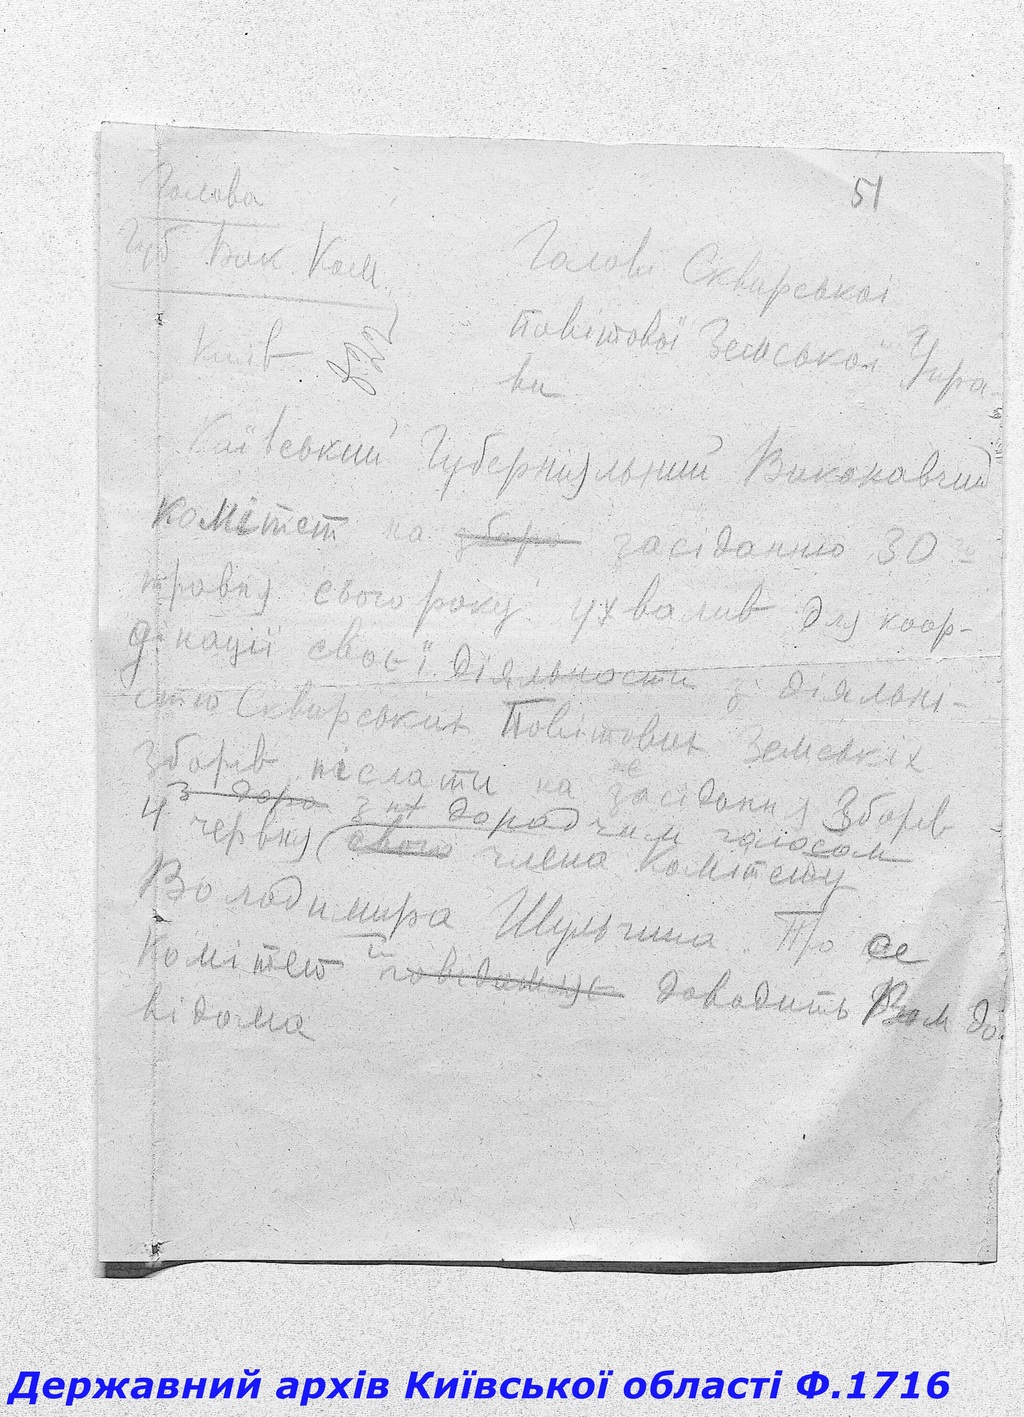 51
Голова
Губ Вик Ком
Київ
822
Голові Сквирської
Повітової Земської Упра-
ви
Київський Губерніяльний Виконавчий
Комітет на збори засіданню 30го
травня сього року ухвалив для коор-
дінації своєї діяльности з діяльні-
стю Сквирських Повітових Земських
Зборів післати на засідання Зборів
з дора з дорадчим голосом
4 червня свого члена Комітету
Володимира Шульгина. Про се
Комітет й повідомляє доводить Вам до
відома
Державний архів Київської області Ф.1716